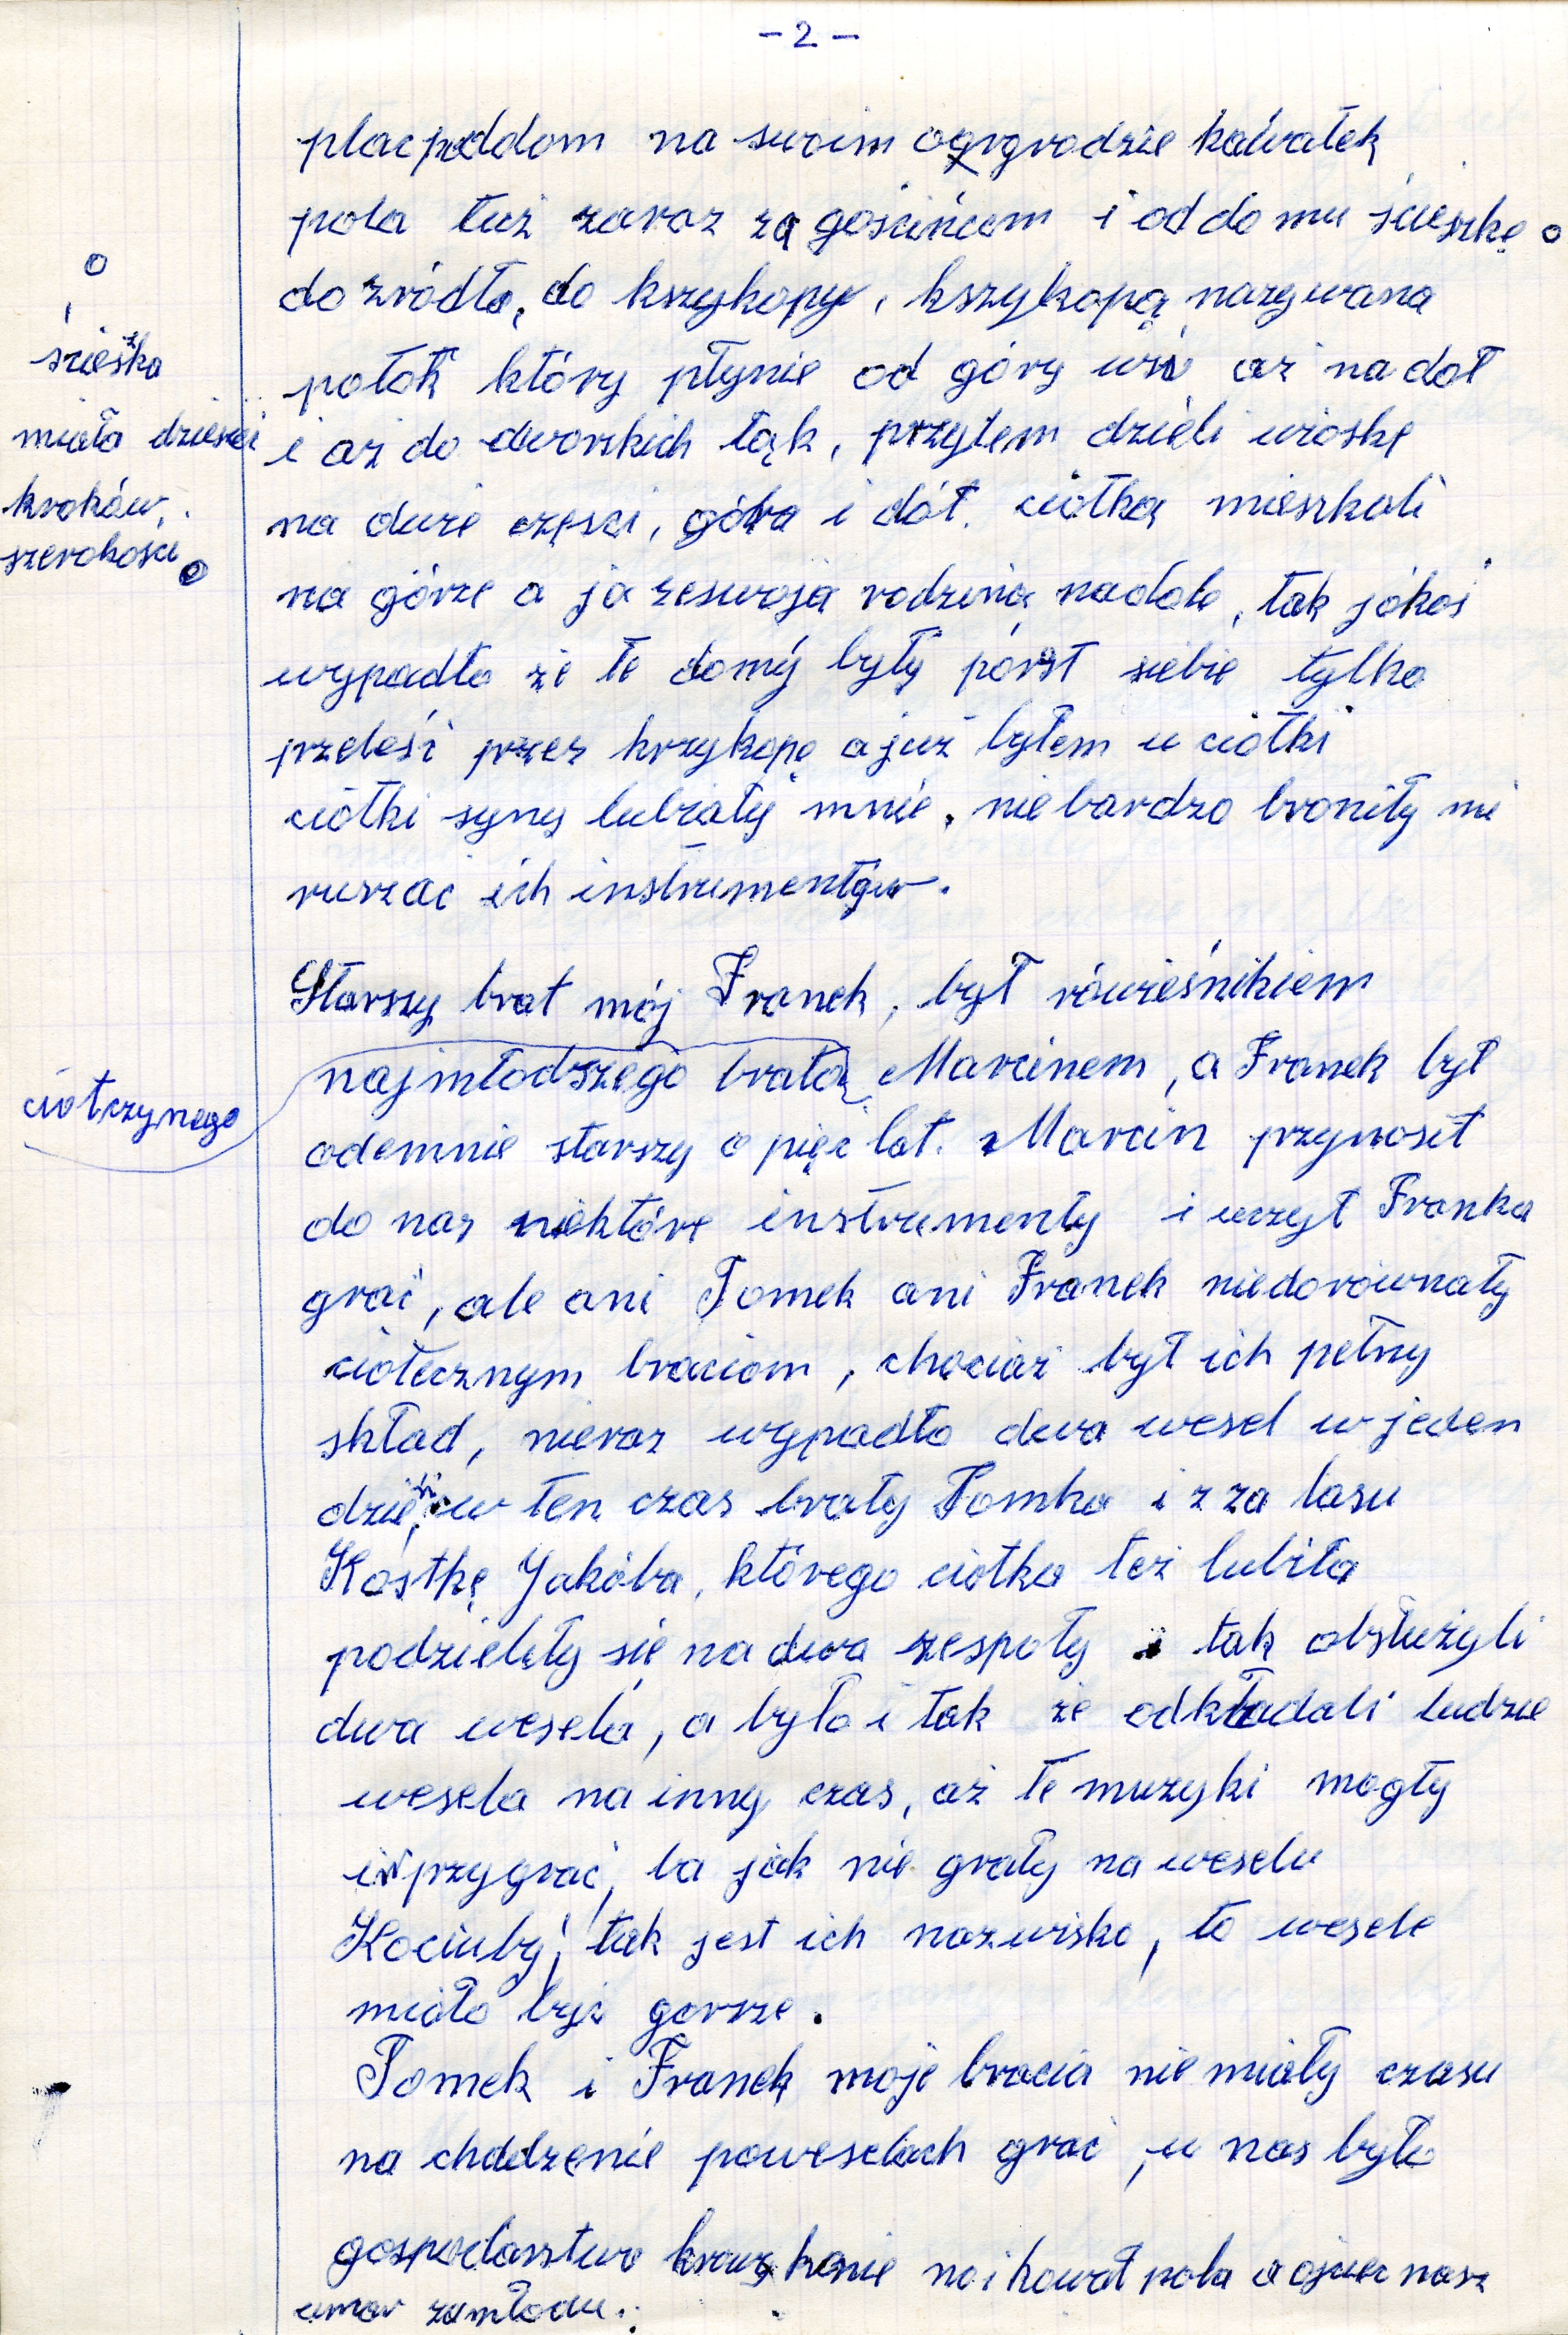 - 2 -
plac poddom na swoim ogrgrodzie kawałek
pola tuż zaraz za gościńcem i od domu ścieszkę o
do zródła, do kszykopy, kszykopą nazywana
potok który płynie od góry wsi aż na doł
i aż do dworskich łąk, przytem dzieli wioskę
na dwie częsci, góra i dół. ciotka mieszkali
na górze a ja zeswoją rodziną nadole, tak jakoś
wypadło że te domy były póvst siebie tylko
przeleśź przez krzykopę a już byłem u ciotki
ciotki syny lubiały mnie, nie bardzo broniły mi
ruszać ich instrumentów.
o
szieszka
miała dziesieć
kroków
szerokości o
Starszy brat mój Franek, był rówieśnikiem
najmłodszego brata Marcinem, a Franek był
ciotczynego
odemnie starszy o pięć lat. Marcin przynosił
do nas niektóre instrumenty i uczył Franka
grać, ale ani Tomek ani Franek niedorównały
ciotecznym braciom, chociaż był ich pełny
skład, nieraz wypadło dwa wesel w jeden
dzień, w ten czas brały Tomka i z za lasu
Kostkę Jakóba, którego ciotka też lubiła
podzieliły sie na dwa zespoły i tak obsłużyli
dwa wesela, a było i tak że odkładali ludzie
wesela na inny czas, aż te muzyki mogły
im przygrać, ba jak nie grały na weselu
Kociuby, tak jest ich nazwisko, to wesele
miało być gorsze.
Tomek i Franek moje bracia nie miały czasu
na chodzenie poweselach grać, u nas było
gospodarstwo krowy konie no i kował pola a ojciec nasz
umar zamłodu.